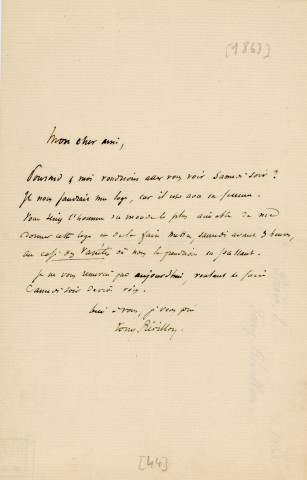 [1863]
Mon cher ami,
Ponsard & moi voudrions aller vous voir Samedi soir ?
Il nous faudrait une loge, car il sera avec sa femme.
Vous seriez l'homme du monde le plus aimable de me
donner cette loge et de la faire mettre, samedi avant 3 heures,
au café des Variétés où nous la prendrions en passant.
Je ne vous remercie pas aujourd'hui, voulant le faire
Samedi soir de vive voix.
bien à vous, je vous prie
Tony Révillon
[44]